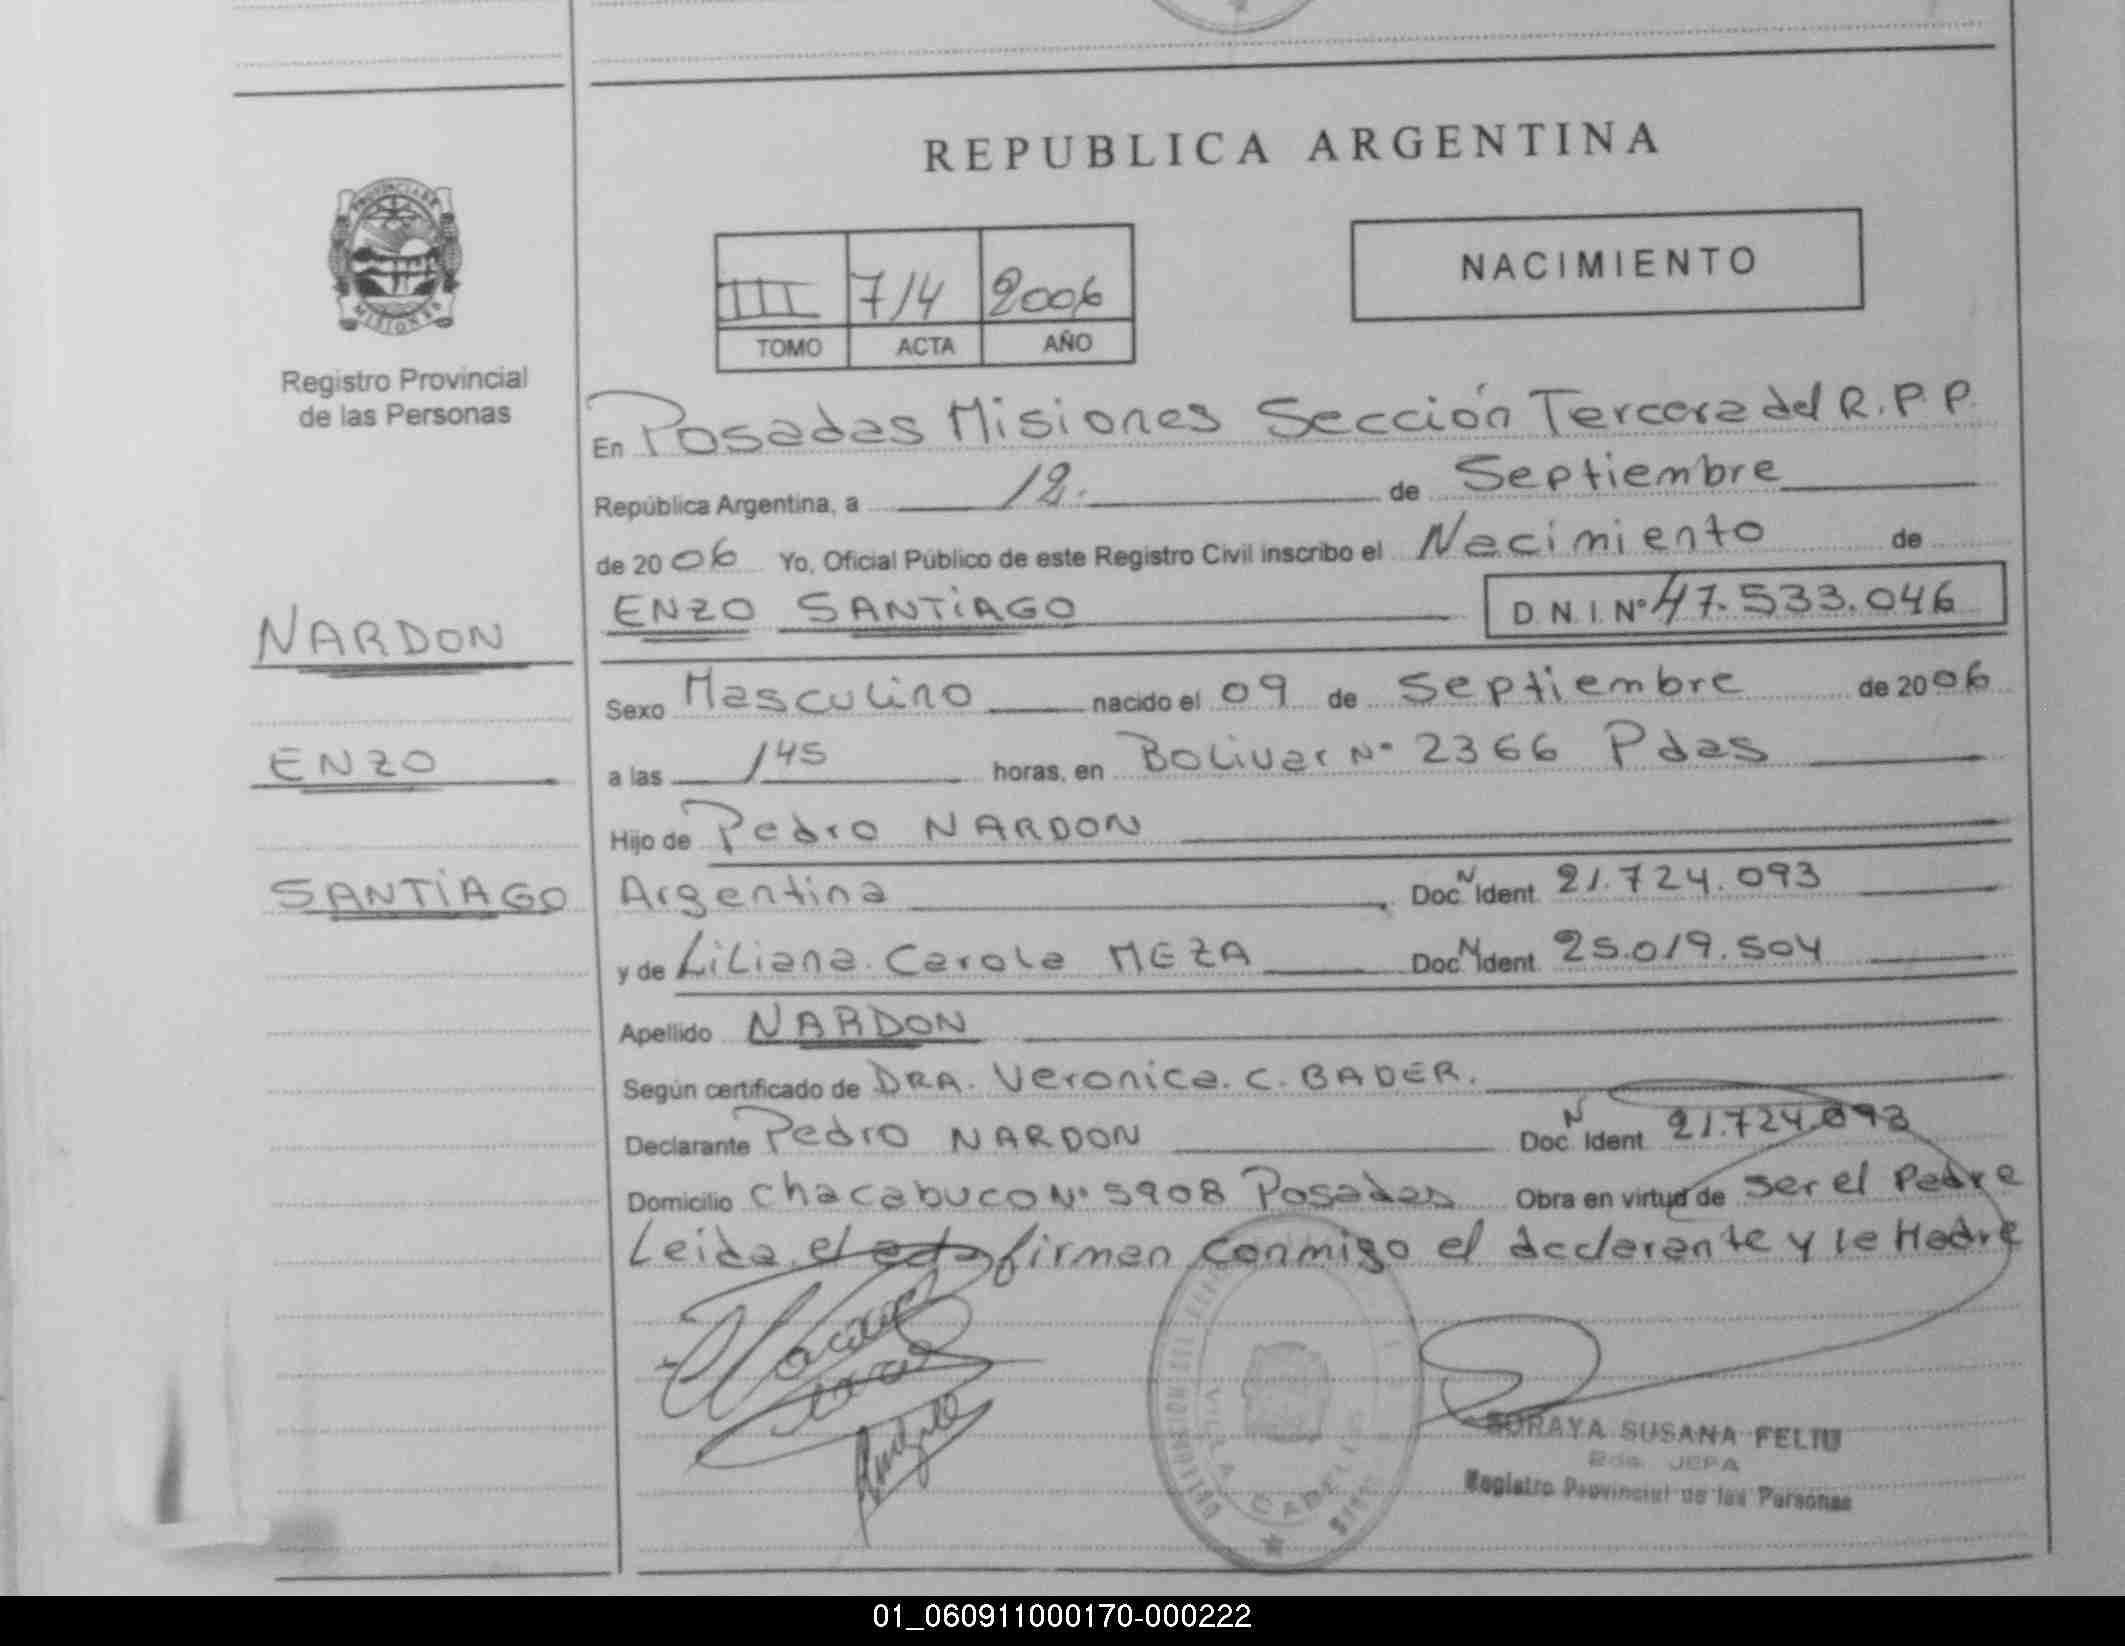 PROVINCIA DE
MISIONES
Registro Provincial
de las Personas
NARDON
ENZO
SANTIAGO
REPUBLICA ARGENTINA
III 714 2006
TOMO ACTA AÑO
NACIMIENTO
En Posadas Misiones Sección Tercera del R.P.P.
República Argentina, a 12. de Septiembre
de 2006 Yo, Oficial Público de este Registro Civil inscribo el Nacimiento de
ENZO SANTIAGO D.N.I.Nº 47.533.046
Sexo Masculino nacido el 09 de Septiembre de 2006
a las 145 horas, en Bolivar Nº 2366 Pdas
Hijo de Pedro NARDON
Argentina Doc N Ident. 21.724.093
y de Liliana Carola MEZA Doc N Ident. 25.019.504
Apellido NARDON
Según certificado de DRA. Veronica. C. BADER.
Declarante Pedro NARDON Doc. N Ident. 21.724.093
Domicilio Chacabuco Nº 5908 Posadas Obra en virtud de ser el Padre
Leida el acta firman conmigo el declarante y la Madre
VILLA CABELLO
SORAYA SUSANA FELIU
JEFA
Registro Provincial de las Personas
01_060911000170-000222